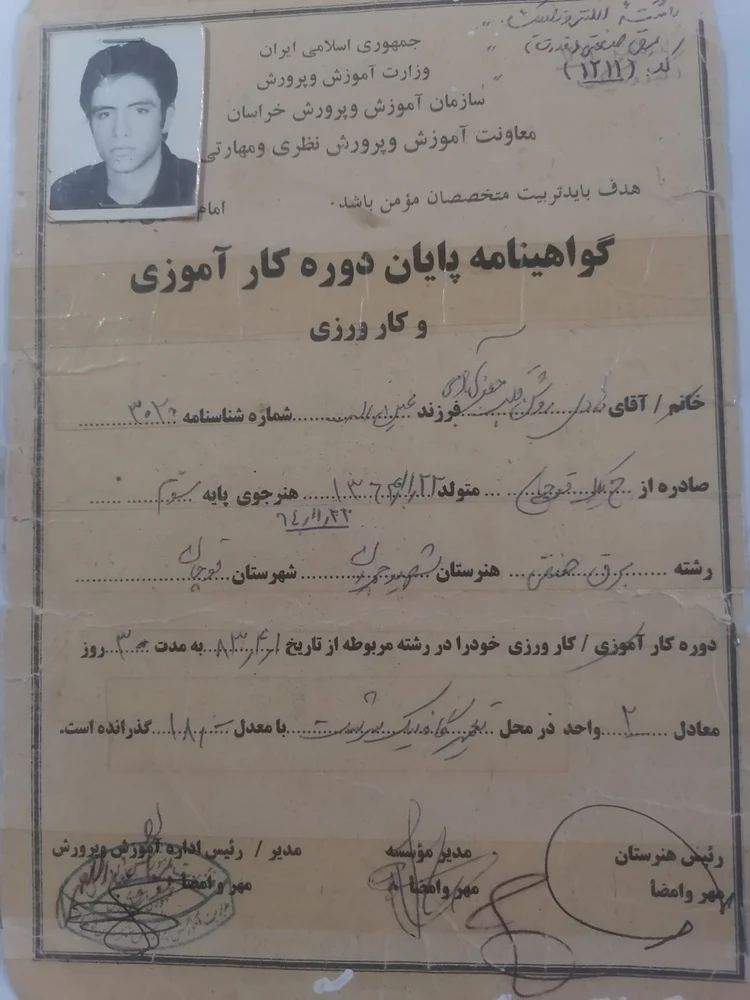 رشته الکتروتکنیک
برق صنعتی (قدرت)
کد: (۱۲۱۱)
جمهوری اسلامی ایران
وزارت آموزش وپرورش
سازمان آموزش وپرورش خراسان
معاونت آموزش وپرورش نظری ومهارتی
هدف بایدتربیت متخصصان مؤمن باشد.
امام
گواهینامه پایان دوره کار آموزی
و کار ورزی
خانم / آقای فرزند شماره شناسنامه ۳۰۲۰
صادره از قوچان متولد هنرجوی پایه سوم
۶۴,۱۱,۲۲
رشته برق صنعتی هنرستان شهید شهرستان قوچان
دوره کار آموزی / کار ورزی خودرا در رشته مربوطه از تاریخ ۸۳,۴,۱ به مدت ۳۰ روز
معادل ۲ واحد در محل با معدل گذرانده است.
رئیس هنرستان
مهر وامضا
مدیر مؤسسه
مهر وامضا
مدیر / رئیس اداره آموزش وپرورش
مهر وامضا